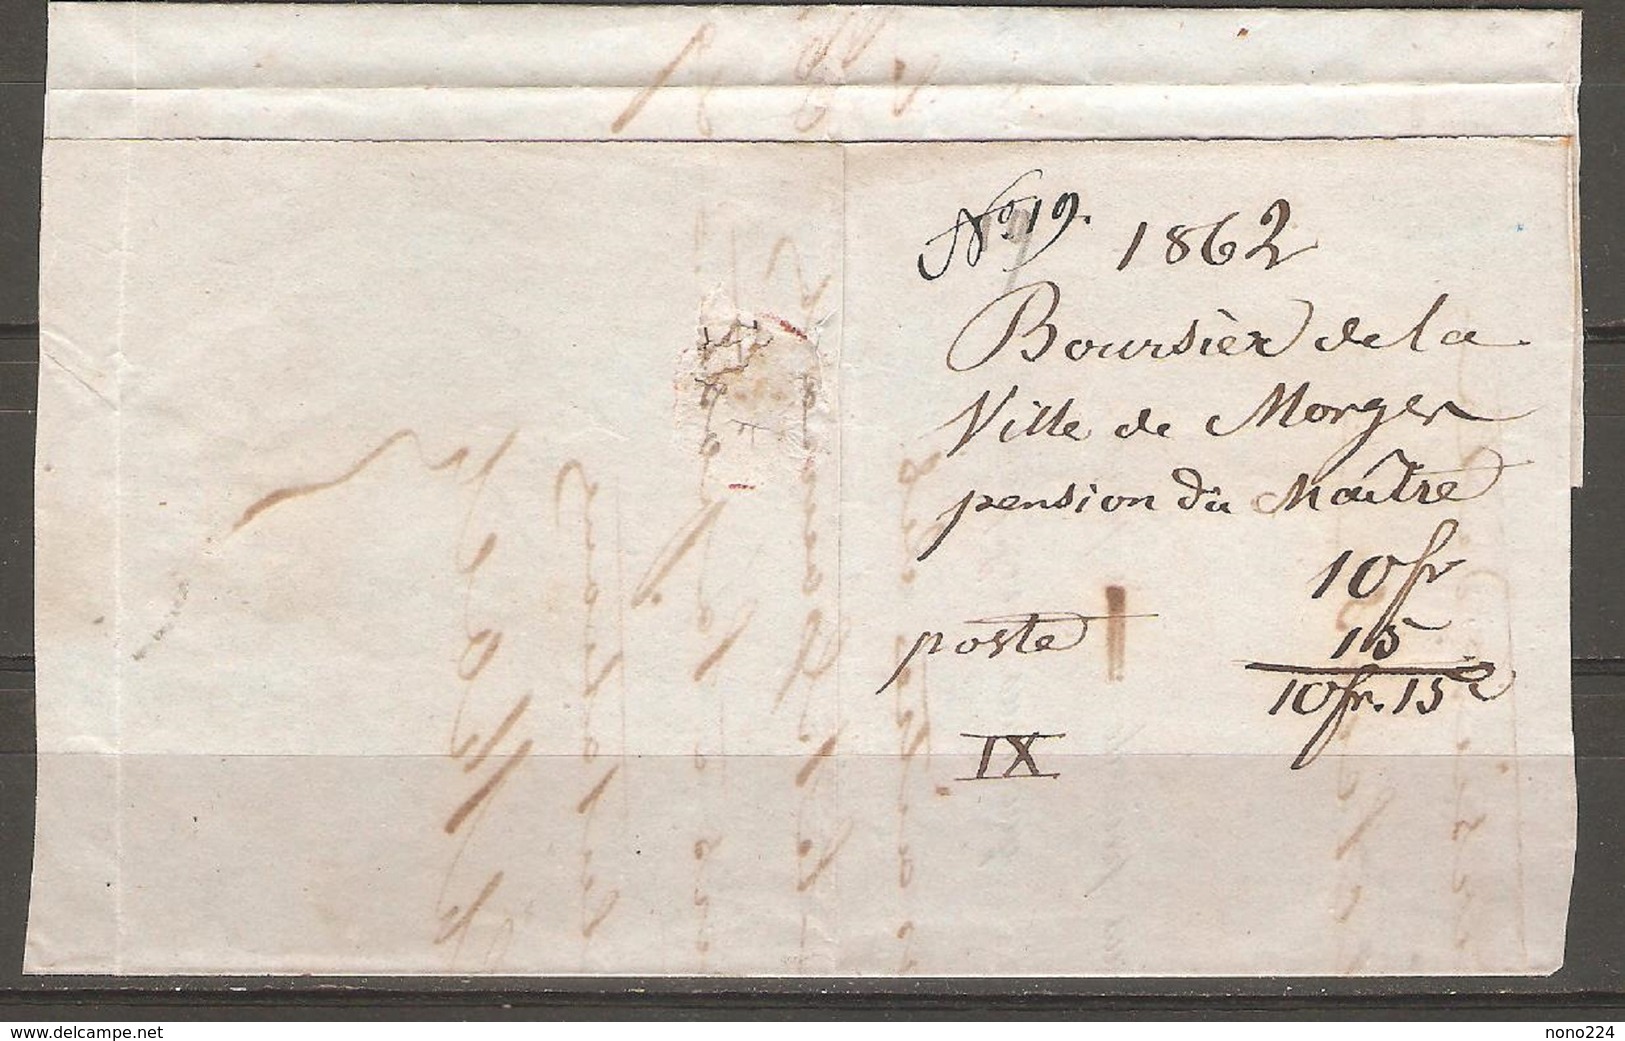 No. 19. 1862
Boursier de la
Ville de Morges
pension du Maître
10 fr
poste 15
10 fr. 15 c
IX
www.delcampe.net
nono224